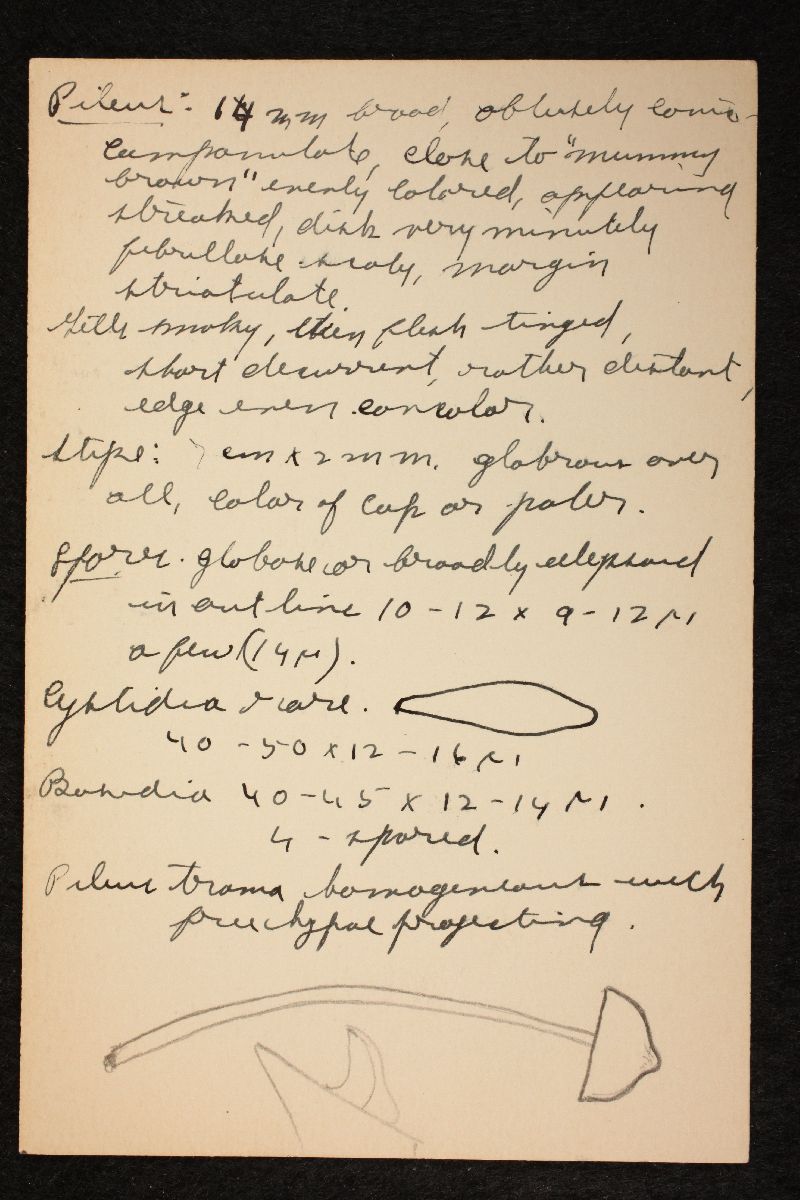 Pileus: 14 mm broad, obtusely conic-
campanulate, close to "mummy
brown" evenly colored, appearing
streaked, disk very minutely
fibrillose scaly, margin
striatulate.
Gills smoky, then flesh tinged,
short decurrent, rather distant,
edge even concolor.
Stipe: 7 cm x 2 mm. glabrous over
all, color of cap or paler.
Spores. globose or broadly ellipsoid
in outline 10-12 x 9-12 μ
a few (14 μ).
Cystidia rare.
40-50 x 12-16 μ
Basidia 40-45 x 12-14 μ.
4-spored.
Pileus trama homogeneous with
free hyphae projecting.